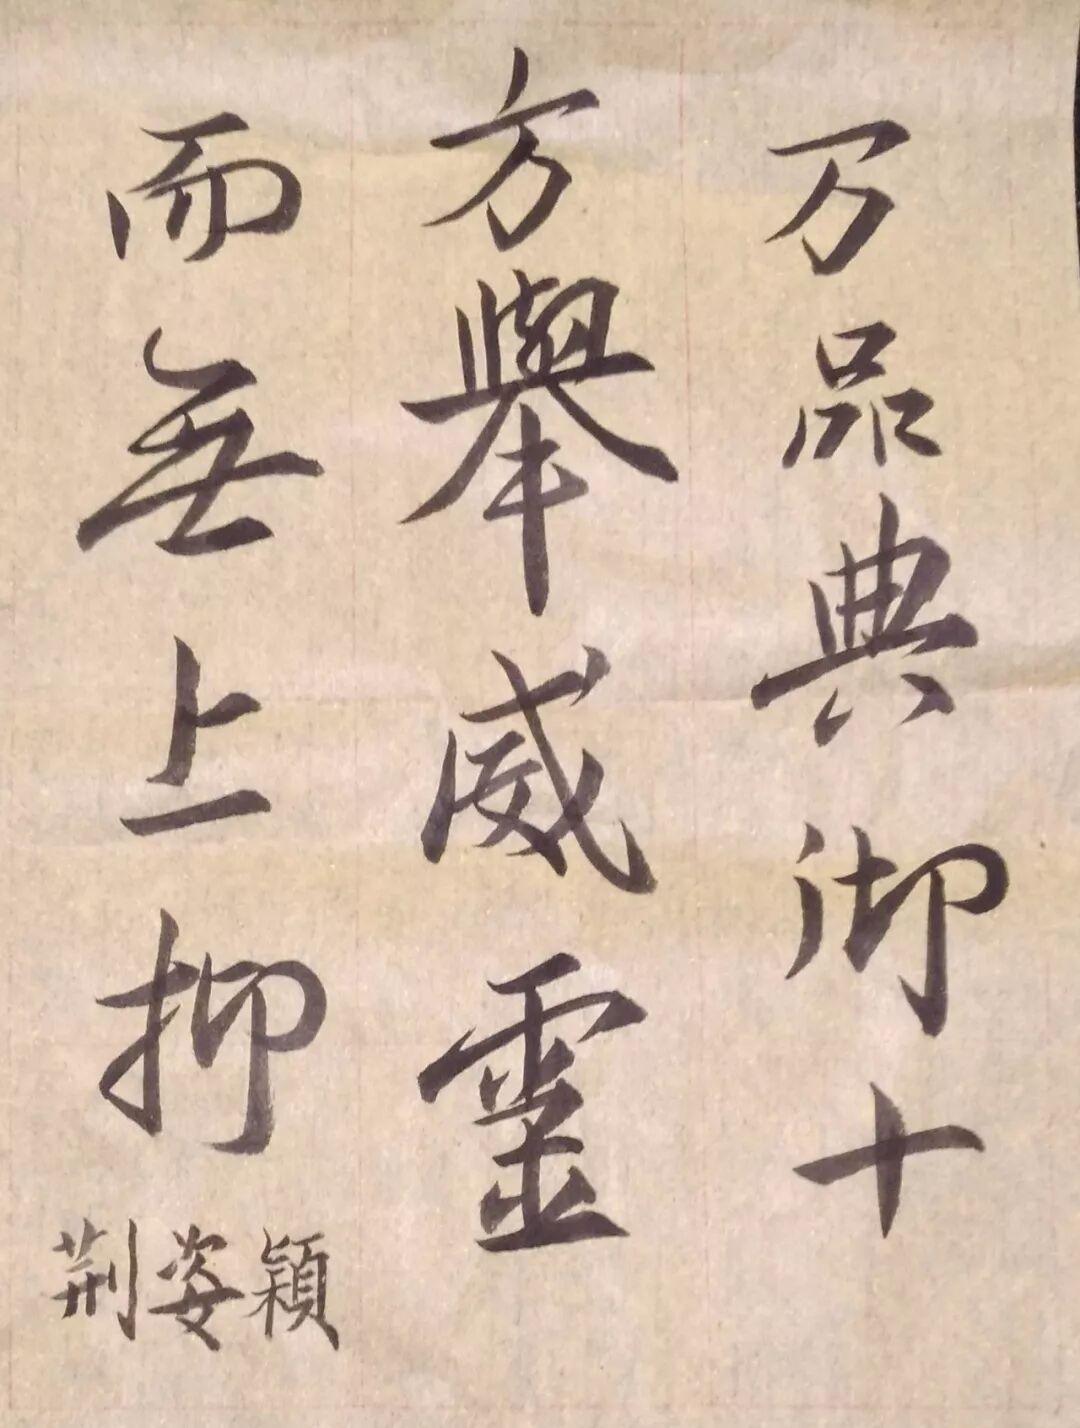 万品典御十
方舉威靈
而無上抑
荆姿穎